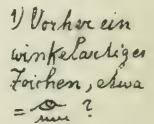 1) Vorher ein
winkelartiges
Zeichen, etwa
= ?